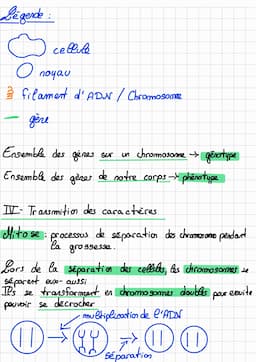 Légende :
cellule
noyau
filament d'ADN / Chromosome
gène
Ensemble des gènes sur un chromosome → génotype
Ensemble des gènes de notre corps → phénotype
IV - Transmition des caractères
Mitose : processus de séparation des chromosome pendant
la grossesse.
Lors de la séparation des cellules, les chromosomes se
séparent eux-aussi
Ils se transforment en chromosomes doubles pour ensuite
pouvoir se décrocher
multiplication de l'ADN
Séparation